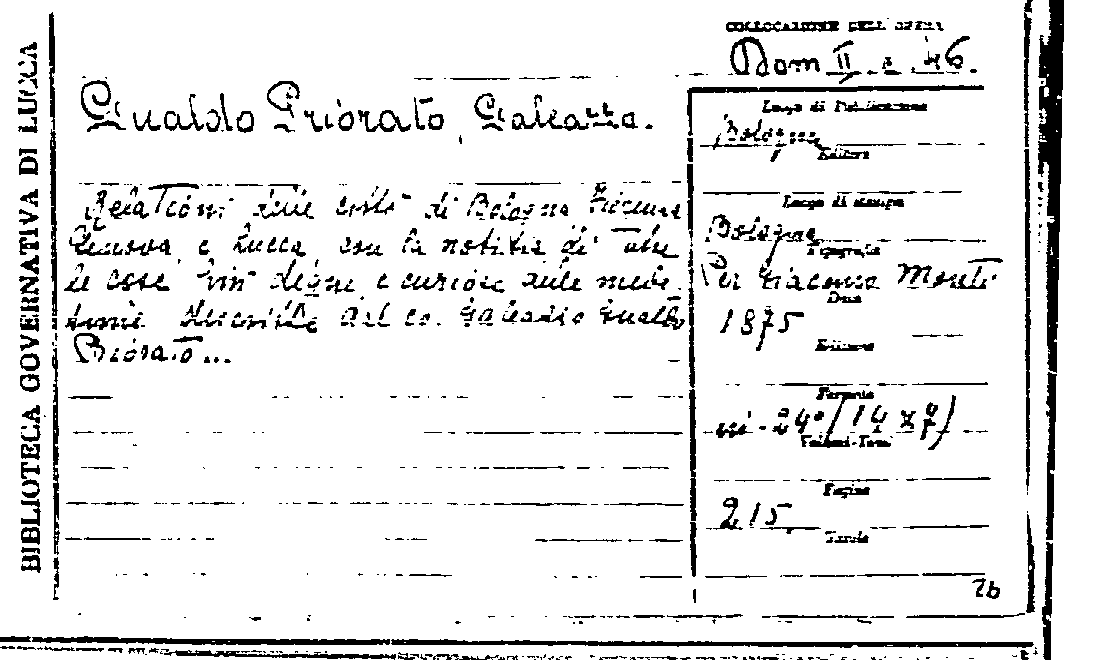 BIBLIOTECA GOVERNATIVA DI LUCCA
COLLOCAZIONE DELL'OPERA
Dom II. 2. 46.
Gualdo Priorato, Galeazzo.
Relationi delle città di Bologna Fiorenza
Genova, e Lucca, con la notitia di tutte
le cose più degne, e curiose delle mede-
sime descritte dal co. Galeazzo Gualdo
Priorato...
Luogo di Pubblicazione
Bologna
Editore
Luogo di stampa
Bologna
Tipografia
Per Giacomo Monti
Data
1875
Edizione
Formato
in-24° (14 x 7)
Volumi-Tomi
Pagine
215.
Tavole